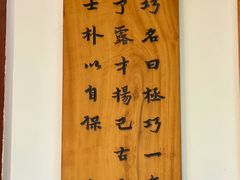 巧名曰極巧一
了露才揚己古
士朴以自保